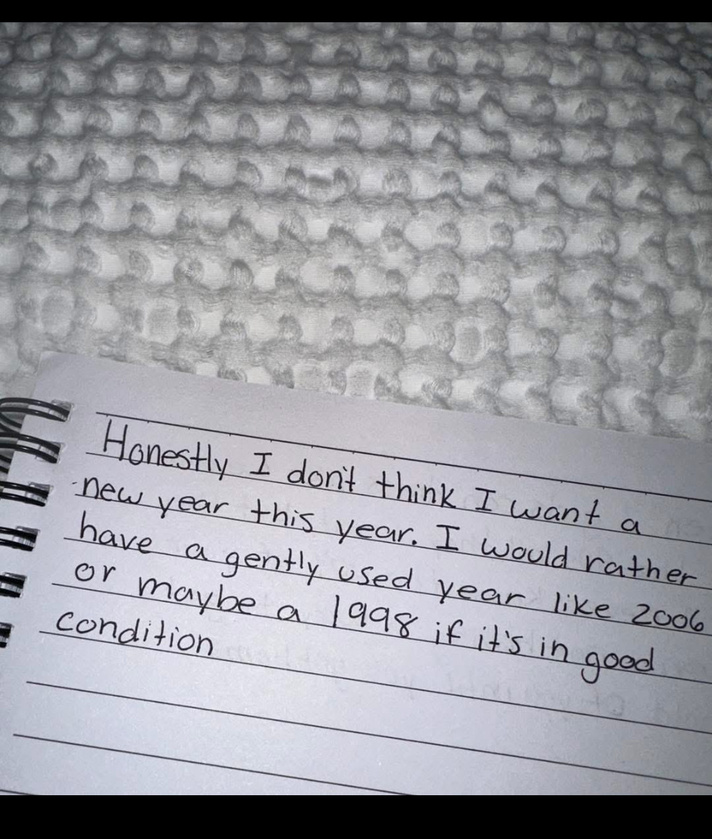 Honestly I don't think I want a
new year this year. I would rather
have a gently used year like 2006
or maybe a 1998 if it's in good
condition